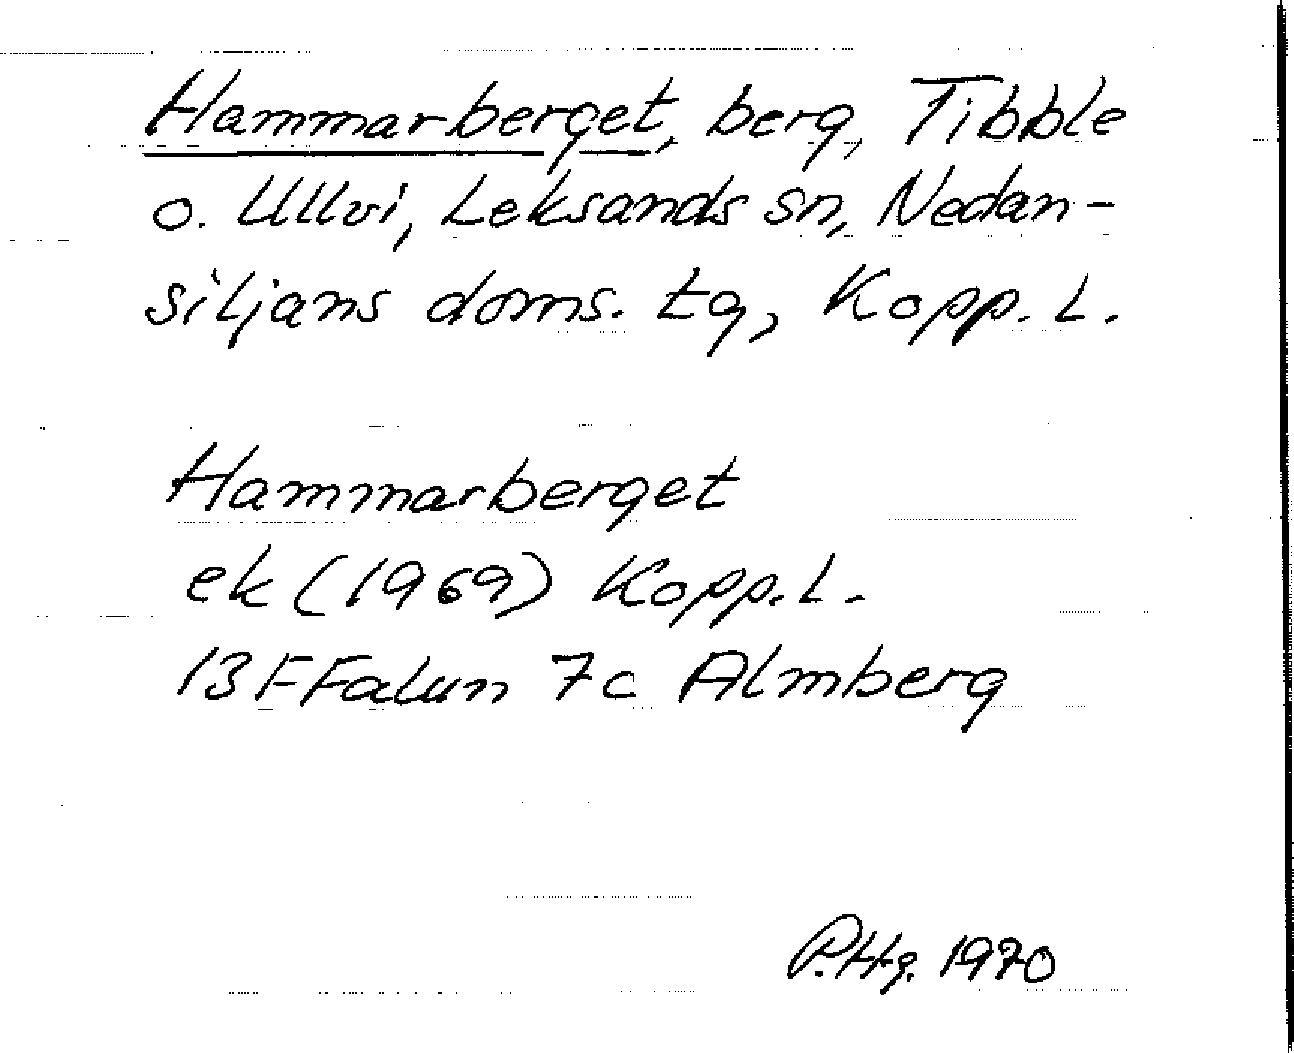 Hammarberget, berg, Tibble
o. Ullvi, Leksands sn, Nedan-
siljans doms. tg, Kopp. L.
Hammarberget
ek (1969) Kopp. L.
13F Falun 7c Almberg
P.Hg. 1970